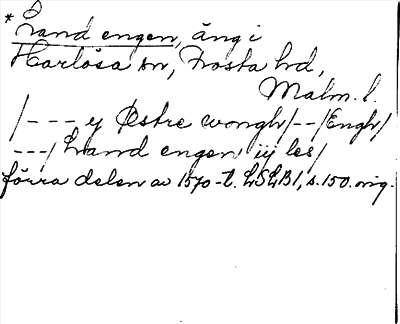 * Land engen, äng i
Harlösa sn, Frosta hd,
Malm. l.
/--- y Østre wongh/--/Engh/
---/ Land engen iij les/
förra delen av 1570-t. LSLB1, s. 150. orig.